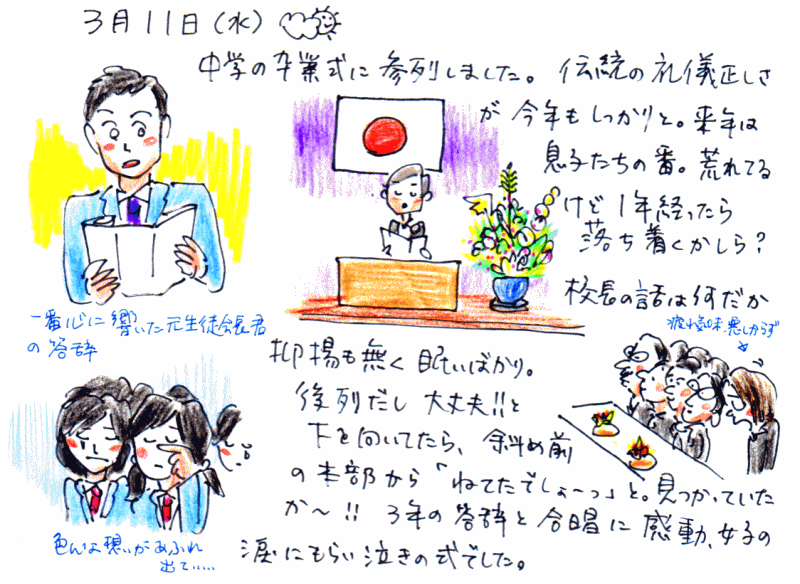 3月11日（水）
中学の卒業式に参列しました。伝統の礼儀正しさ
が今年もしっかりと。来年は
息子たちの番。荒れてる
けど1年経ったら
落ち着くかしら？
校長の話は何だか
疲れ気味、悪しからず
一番心に響いた元生徒会長君
の答辞
抑揚も無く眠いばかり。
後列だし大丈夫!!と
下を向いてたら、斜め前
の本部から「ねてたでしょーっ」と。見つかっていた
か〜!! 3年の答辞と合唱に感動、女子の
涙にもらい泣きの式でした。
色んな想いがあふれ
出て……